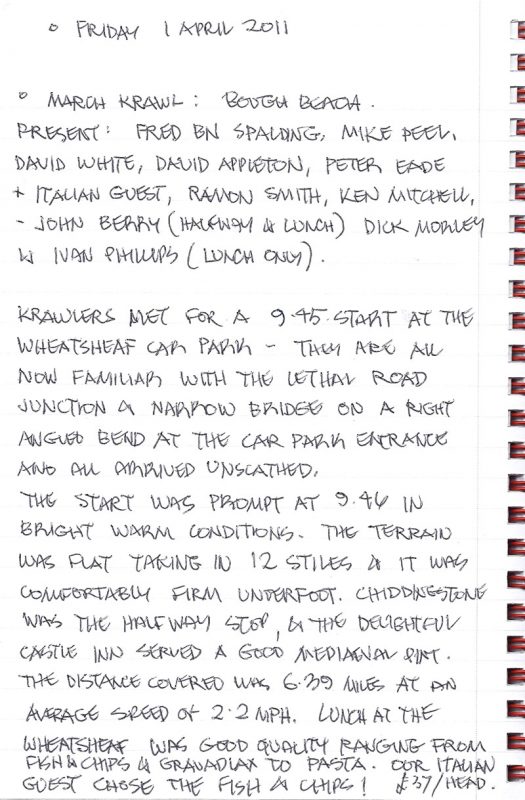 ° FRIDAY 1 APRIL 2011
° MARCH KRAWL: BOUGH BEACH.
PRESENT: FRED BN SPALDING, MIKE PEEL,
DAVID WHITE, DAVID APPLETON, PETER EADE
+ ITALIAN GUEST, RAMON SMITH, KEN MITCHELL,
- JOHN BERRY (HALFWAY & LUNCH) DICK MORLEY
& IVAN PHILLIPS (LUNCH ONLY).
KRAWLERS MET FOR A 9.45 START AT THE
WHEATSHEAF CAR PARK - THEY ARE ALL
NOW FAMILIAR WITH THE LETHAL ROAD
JUNCTION & NARROW BRIDGE ON A RIGHT
ANGLED BEND AT THE CAR PARK ENTRANCE
AND ALL ARRIVED UNSCATHED.
THE START WAS PROMPT AT 9.46 IN
BRIGHT WARM CONDITIONS. THE TERRAIN
WAS FLAT TAKING IN 12 STILES & IT WAS
COMFORTABLY FIRM UNDERFOOT. CHIDDINGSTONE
WAS THE HALFWAY STOP, & THE DELIGHTFUL
CASTLE INN SERVED A GOOD MEDIAEVAL PINT.
THE DISTANCE COVERED WAS 6.39 MILES AT AN
AVERAGE SPEED OF 2.2 MPH. LUNCH AT THE
WHEATSHEAF WAS GOOD QUALITY RANGING FROM
FISH & CHIPS & GRAVADLAX TO PASTA. OUR ITALIAN
GUEST CHOSE THE FISH & CHIPS! £37/HEAD.